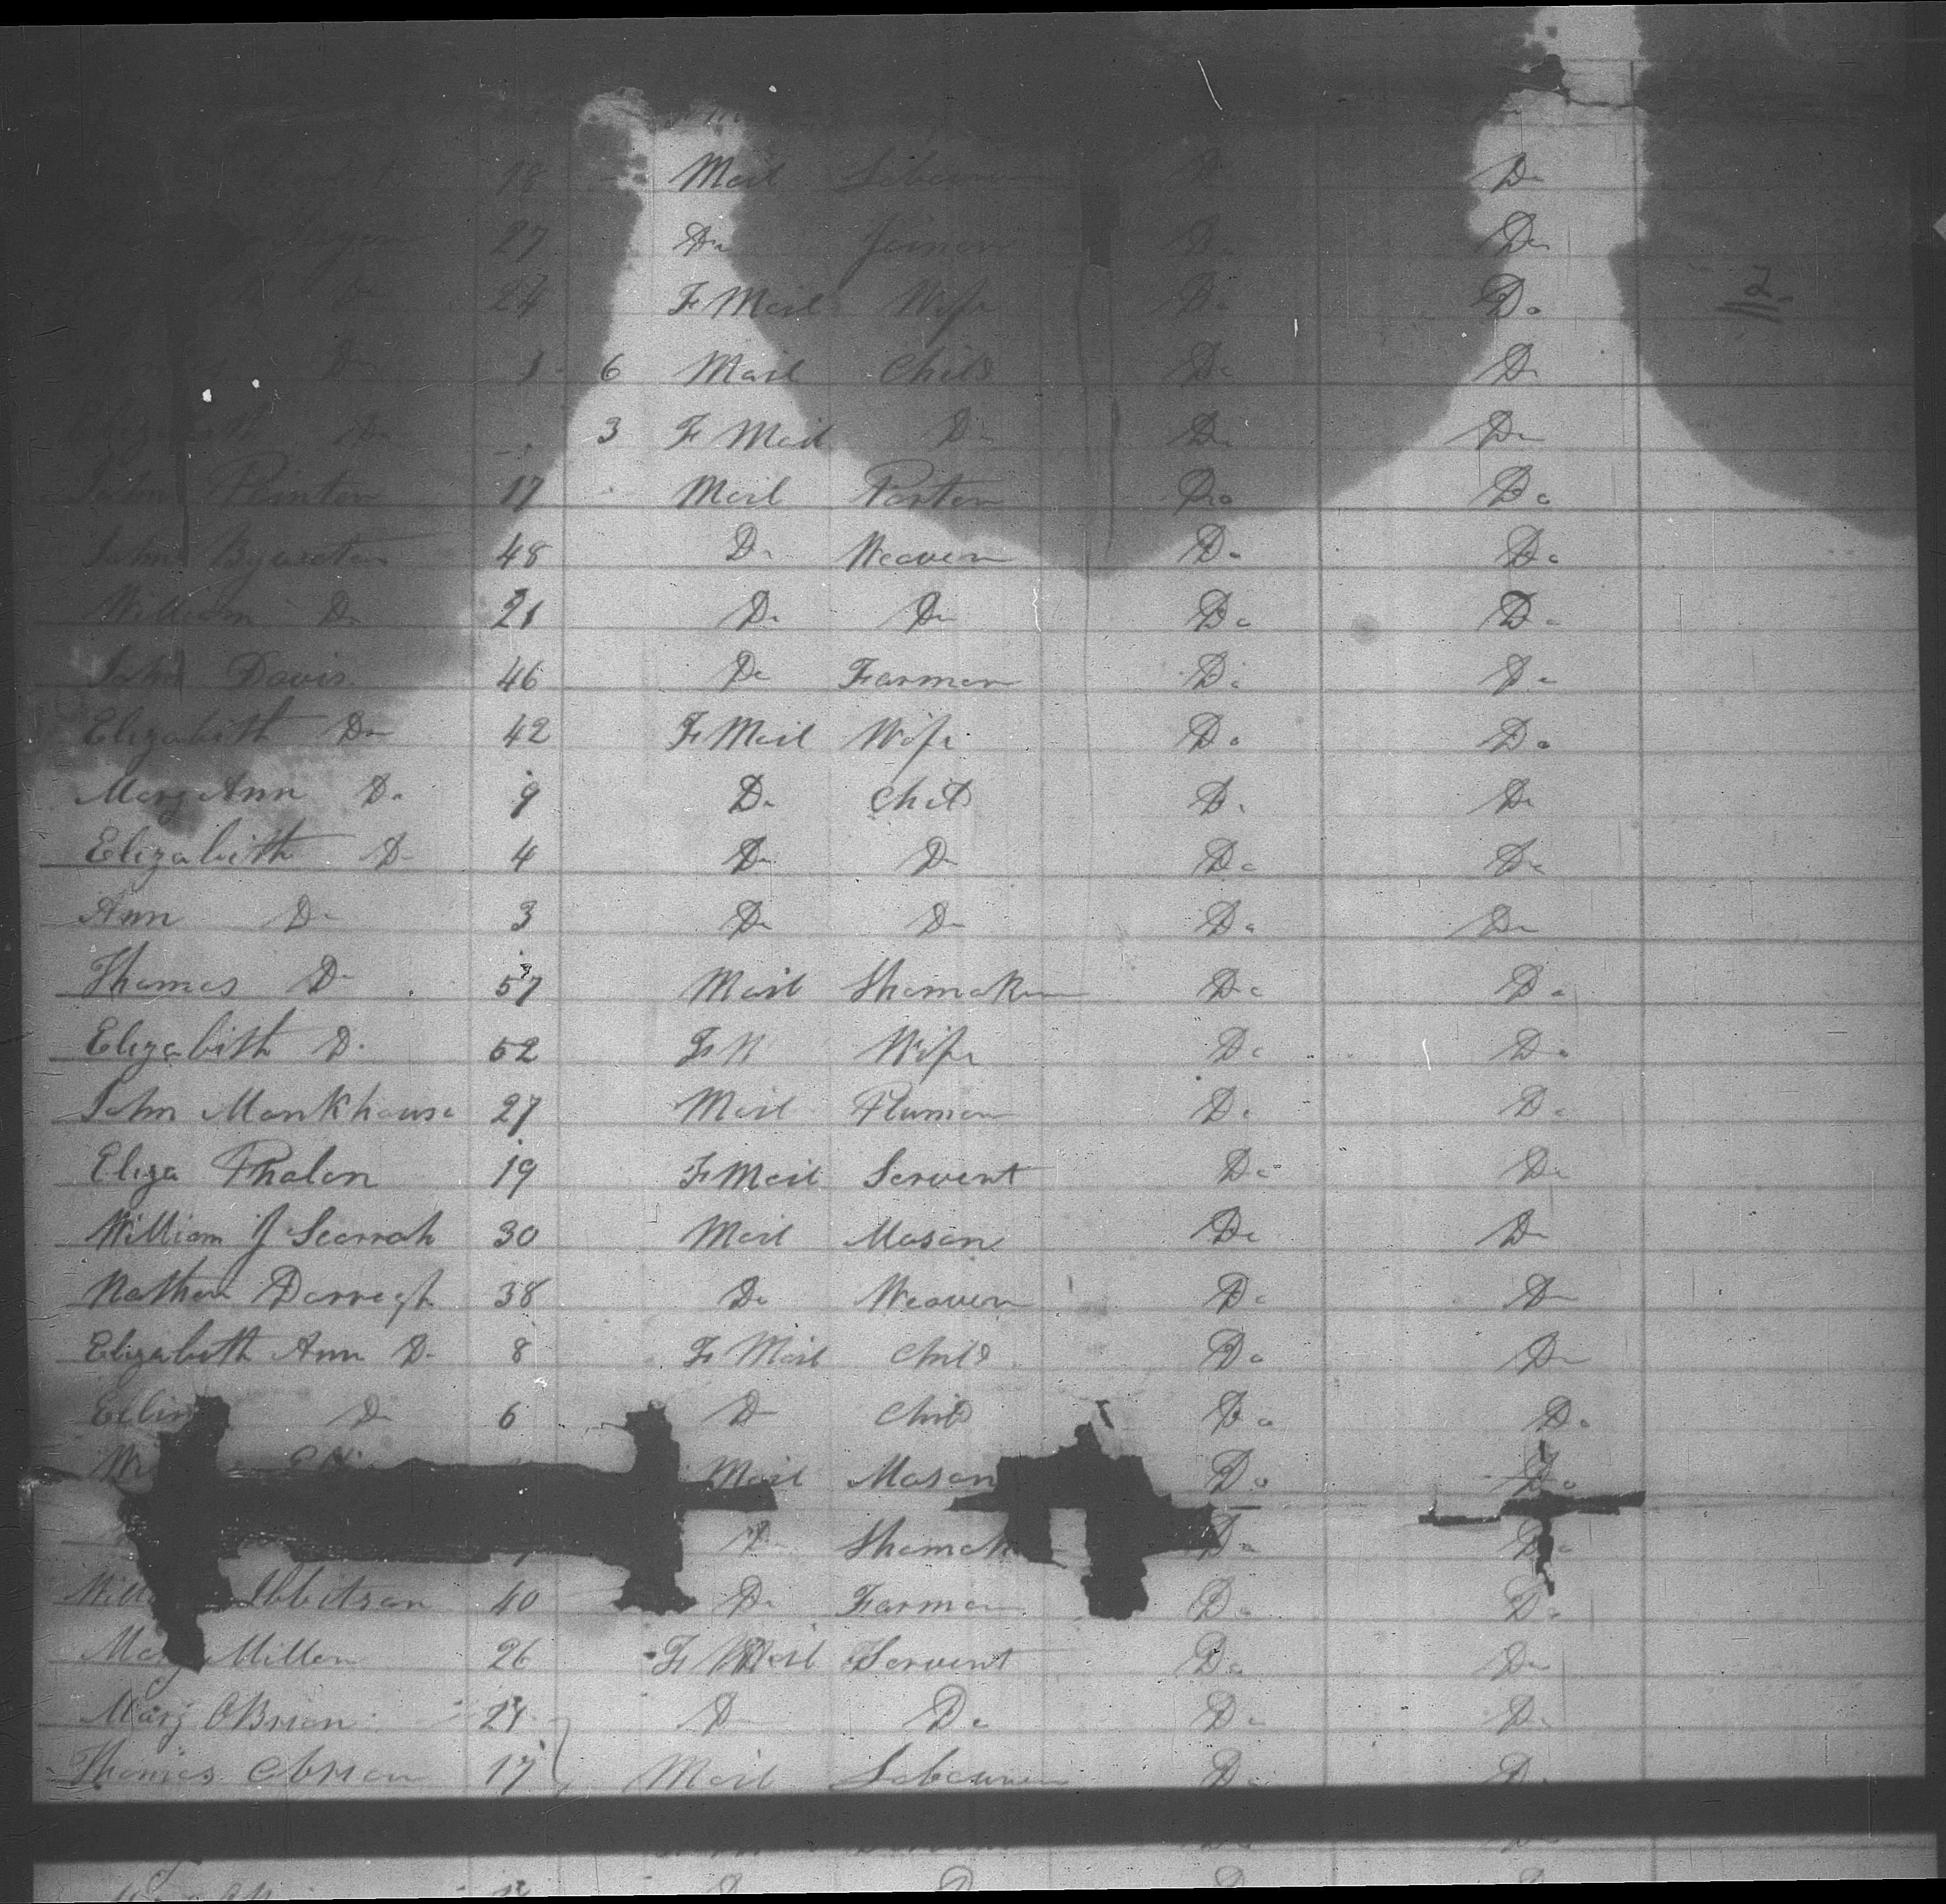 18 Mail Labourer Do
27 Do Joiner Do Do
Do 24 F Mail Wife Do Do 2
Do 1 6 Mail Child Do Do
Elizabeth Do 3 F Mail Do Do Do
John Painter 17 Mail Porter Do Do
John 48 Do Weaver Do Do
William Do 21 Do Do Do Do
John Davis 46 Do Farmer Do Do
Elizabeth Do 42 F Mail Wife Do Do
Mary Ann Do 9 Do Child Do Do
Elizabeth Do 4 Do Do Do Do
Ann Do 3 Do Do Do Do
Thomas Do 57 Mail Shomaker Do Do
Elizabeth Do 52 F M Wife Do Do
John Monkhouse 27 Mail Do Do
Eliza Phalen 19 F Mail Servent Do Do
William J Scarrah 30 Mail Mason Do Do
Nathen Darragh 38 Do Weaver Do Do
Elizabeth Ann Do 8 F Mail Child Do Do
Ellin Do 6 Do Child Do Do
Mail Mason Do Do
Do Shomak Do Do
Will Ibbitson 40 Do Farmer Do Do
Mary Miller 26 F Mail Servent Do Do
Mary OBrien 24 Do Do Do Do
Thomas Obrien 17 Mail Labourer Do Do